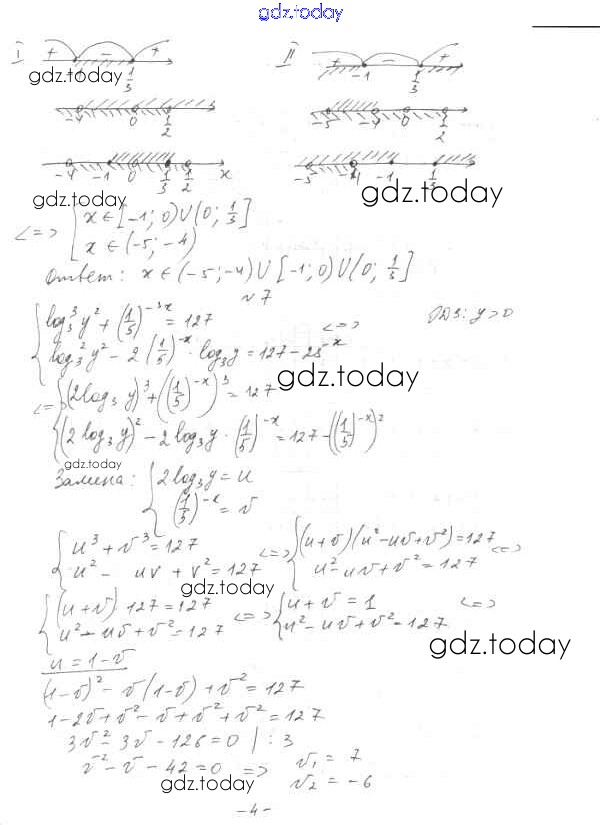 gdz.today
I + - + II + - +
-1 1/3 -1 1/3
gdz.today
-4 0 1/2 -5 -4 0 1/2
-4 -1 0 1/3 1/2 x -5 -4 -1 1/3
gdz.today gdz.today
<=> [ x ∈ [-1; 0) ∪ (0; 1/3]
x ∈ (-5; -4)
Ответ: x ∈ (-5; -4) ∪ [-1; 0) ∪ (0; 1/3]
№7
{ log₃³ y² + (1/5)^(-3x) = 127 <=> ОДЗ: y > 0
log₃² y² - 2 (1/5)^(-x) · log₃ y = 127 - 25^(-x)
gdz.today
<=> { (2 log₃ y)³ + ((1/5)^(-x))³ = 127
(2 log₃ y)² - 2 log₃ y · (1/5)^(-x) = 127 - ((1/5)^(-x))²
gdz.today
Замена: { 2 log₃ y = u
(1/5)^(-x) = v
{ u³ + v³ = 127 <=> { (u+v)(u² - uv + v²) = 127 <=>
u² - uv + v² = 127 u² - uv + v² = 127
gdz.today
{ (u+v) 127 = 127 <=> { u + v = 1 <=>
u² - uv + v² = 127 u² - uv + v² = 127
gdz.today
u = 1 - v
(1-v)² - v(1-v) + v² = 127
1 - 2v + v² - v + v² + v² = 127
3v² - 3v - 126 = 0 | : 3
v² - v - 42 = 0 => v₁ = 7
v₂ = -6
gdz.today
- 4 -